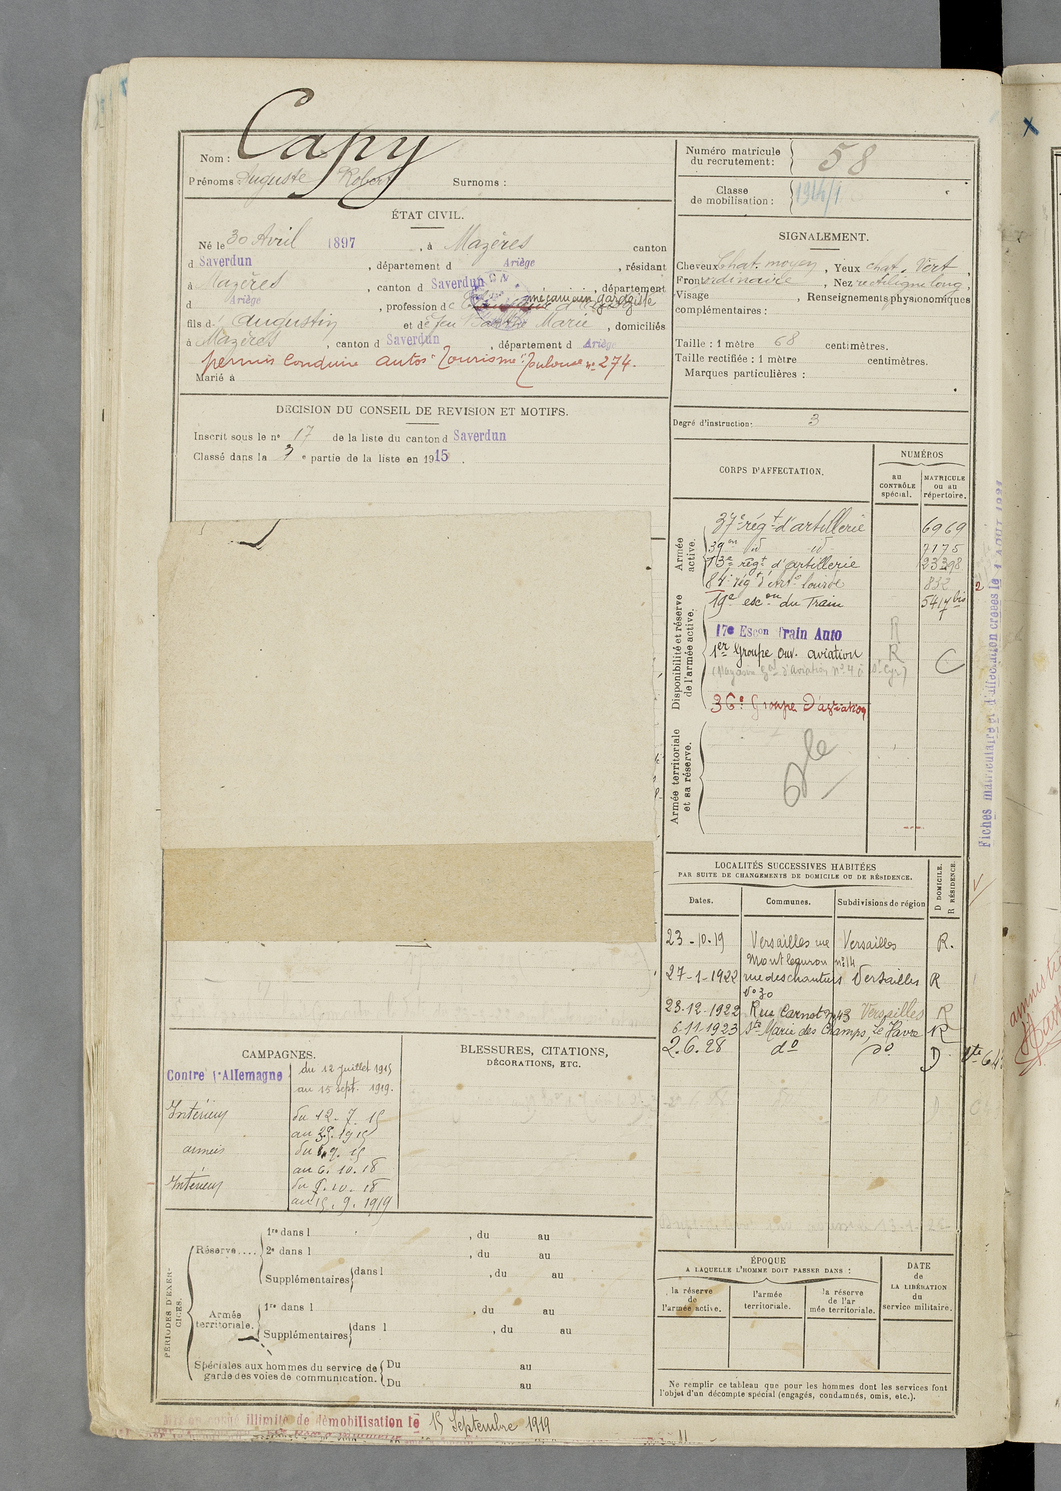 Nom : Capy
Prénoms : Auguste Robert Surnoms :
Numéro matricule du recrutement : 58
Classe de mobilisation :
ÉTAT CIVIL.
Né le 30 Avril 1897, à Mazères canton
d Saverdun, département d Ariège, résidant
à Mazères, canton d Saverdun, département
d Ariège, profession d mécanicien garagiste
fils d Augustin et de feu Marie, domiciliés
à Mazères, canton d Saverdun, département d Ariège
permis conduire autos "Tourisme" Toulouse n° 274.
Marié à
SIGNALEMENT.
Cheveux chat. moyen, Yeux chat. Vert,
Front ordinaire, Nez rectiligne long,
Visage, Renseignements physionomiques
complémentaires :
Taille : 1 mètre 68 centimètres.
Taille rectifiée : 1 mètre centimètres.
Marques particulières :
Degré d'instruction : 3
DÉCISION DU CONSEIL DE REVISION ET MOTIFS.
Inscrit sous le n° 17 de la liste du canton d Saverdun
Classé dans la e partie de la liste en 1915.
CORPS D'AFFECTATION.
NUMÉROS
au CONTRÔLE spécial.
MATRICULE ou au répertoire.
Armée active.
37e régt d'artillerie 6969
39me d° d° 7175
73e régt d'artillerie 23398
84e régt d'Arte lourde 832
Disponibilité et réserve de l'armée active.
19e escon du Train 5417 bis
17e Escon Train Auto R
1er Groupe ouv. aviation R C
(Magasin Gal d'Aviation n° 4 à St Cyr)
36e Groupe d'aviation
Armée territoriale et sa réserve.
Fiches matriculaire et d'affectation créées le 1 AOUT
LOCALITÉS SUCCESSIVES HABITÉES
PAR SUITE DE CHANGEMENTS DE DOMICILE OU DE RÉSIDENCE.
Dates. Communes. Subdivisions de région D DOMICILE. R RÉSIDENCE.
23-10-19 Versailles rue Versailles R.
n° 14
27-1-1922 rue des chantiers Versailles R
N° 30
23-12-1922 Rue Carnot n° 43 Versailles R
6.11.1923 Ste Marie des Champs, Le Havre R
2.6.28 d° d° D
CAMPAGNES.
Contre l'Allemagne du 12 juillet 1915
au 15 sept. 1919.
Intérieur du 12. 7. 15
armées
au 6. 10. 18
Intérieur du 7. 10. 18
au 15. 9. 1919
BLESSURES, CITATIONS,
DÉCORATIONS, ETC.
PÉRIODES D'EXERCICES.
Réserve.... 1re dans l , du au
2e dans l , du au
Supplémentaires dans l , du au
Armée territoriale. 1re dans l , du au
Supplémentaires dans l , du au
Spéciales aux hommes du service de garde des voies de communication. Du au
Du au
ÉPOQUE
A LAQUELLE L'HOMME DOIT PASSER DANS :
la réserve de l'armée active.
l'armée territoriale.
la réserve de l'armée territoriale.
DATE DE LA LIBÉRATION du service militaire.
Ne remplir ce tableau que pour les hommes dont les services font
l'objet d'un décompte spécial (engagés, condamnés, omis, etc.).
Mis en congé illimité de démobilisation le 15 Septembre 1919